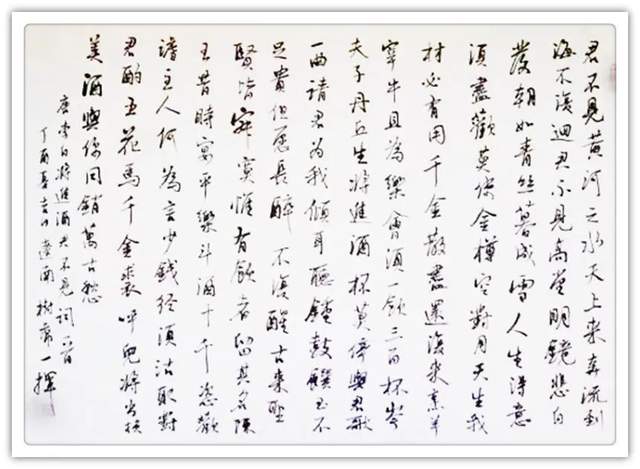 君不見黄河之水天上来奔流到
海不復迴君不見高堂明鏡悲白
發朝如青丝暮成雪人生得意
須盡歡莫使金樽空對月天生我
材必有用千金散盡還復来烹羊
宰牛且為樂會須一飲三百杯岑
夫子丹丘生将進酒杯莫停與君歌
一曲請君为我傾耳聽鐘鼓饌玉不
足貴但愿長醉不復醒古来聖
賢皆寂寞惟有飲者留其名陳
王昔時宴平樂斗酒十千恣歡
謔主人何為言少錢径須沽取對
君酌五花馬千金裘呼兒将出换
美酒與你同銷萬古愁
唐李白将進酒君不見詞一首
丁酉春吉日遼南樹常一揮